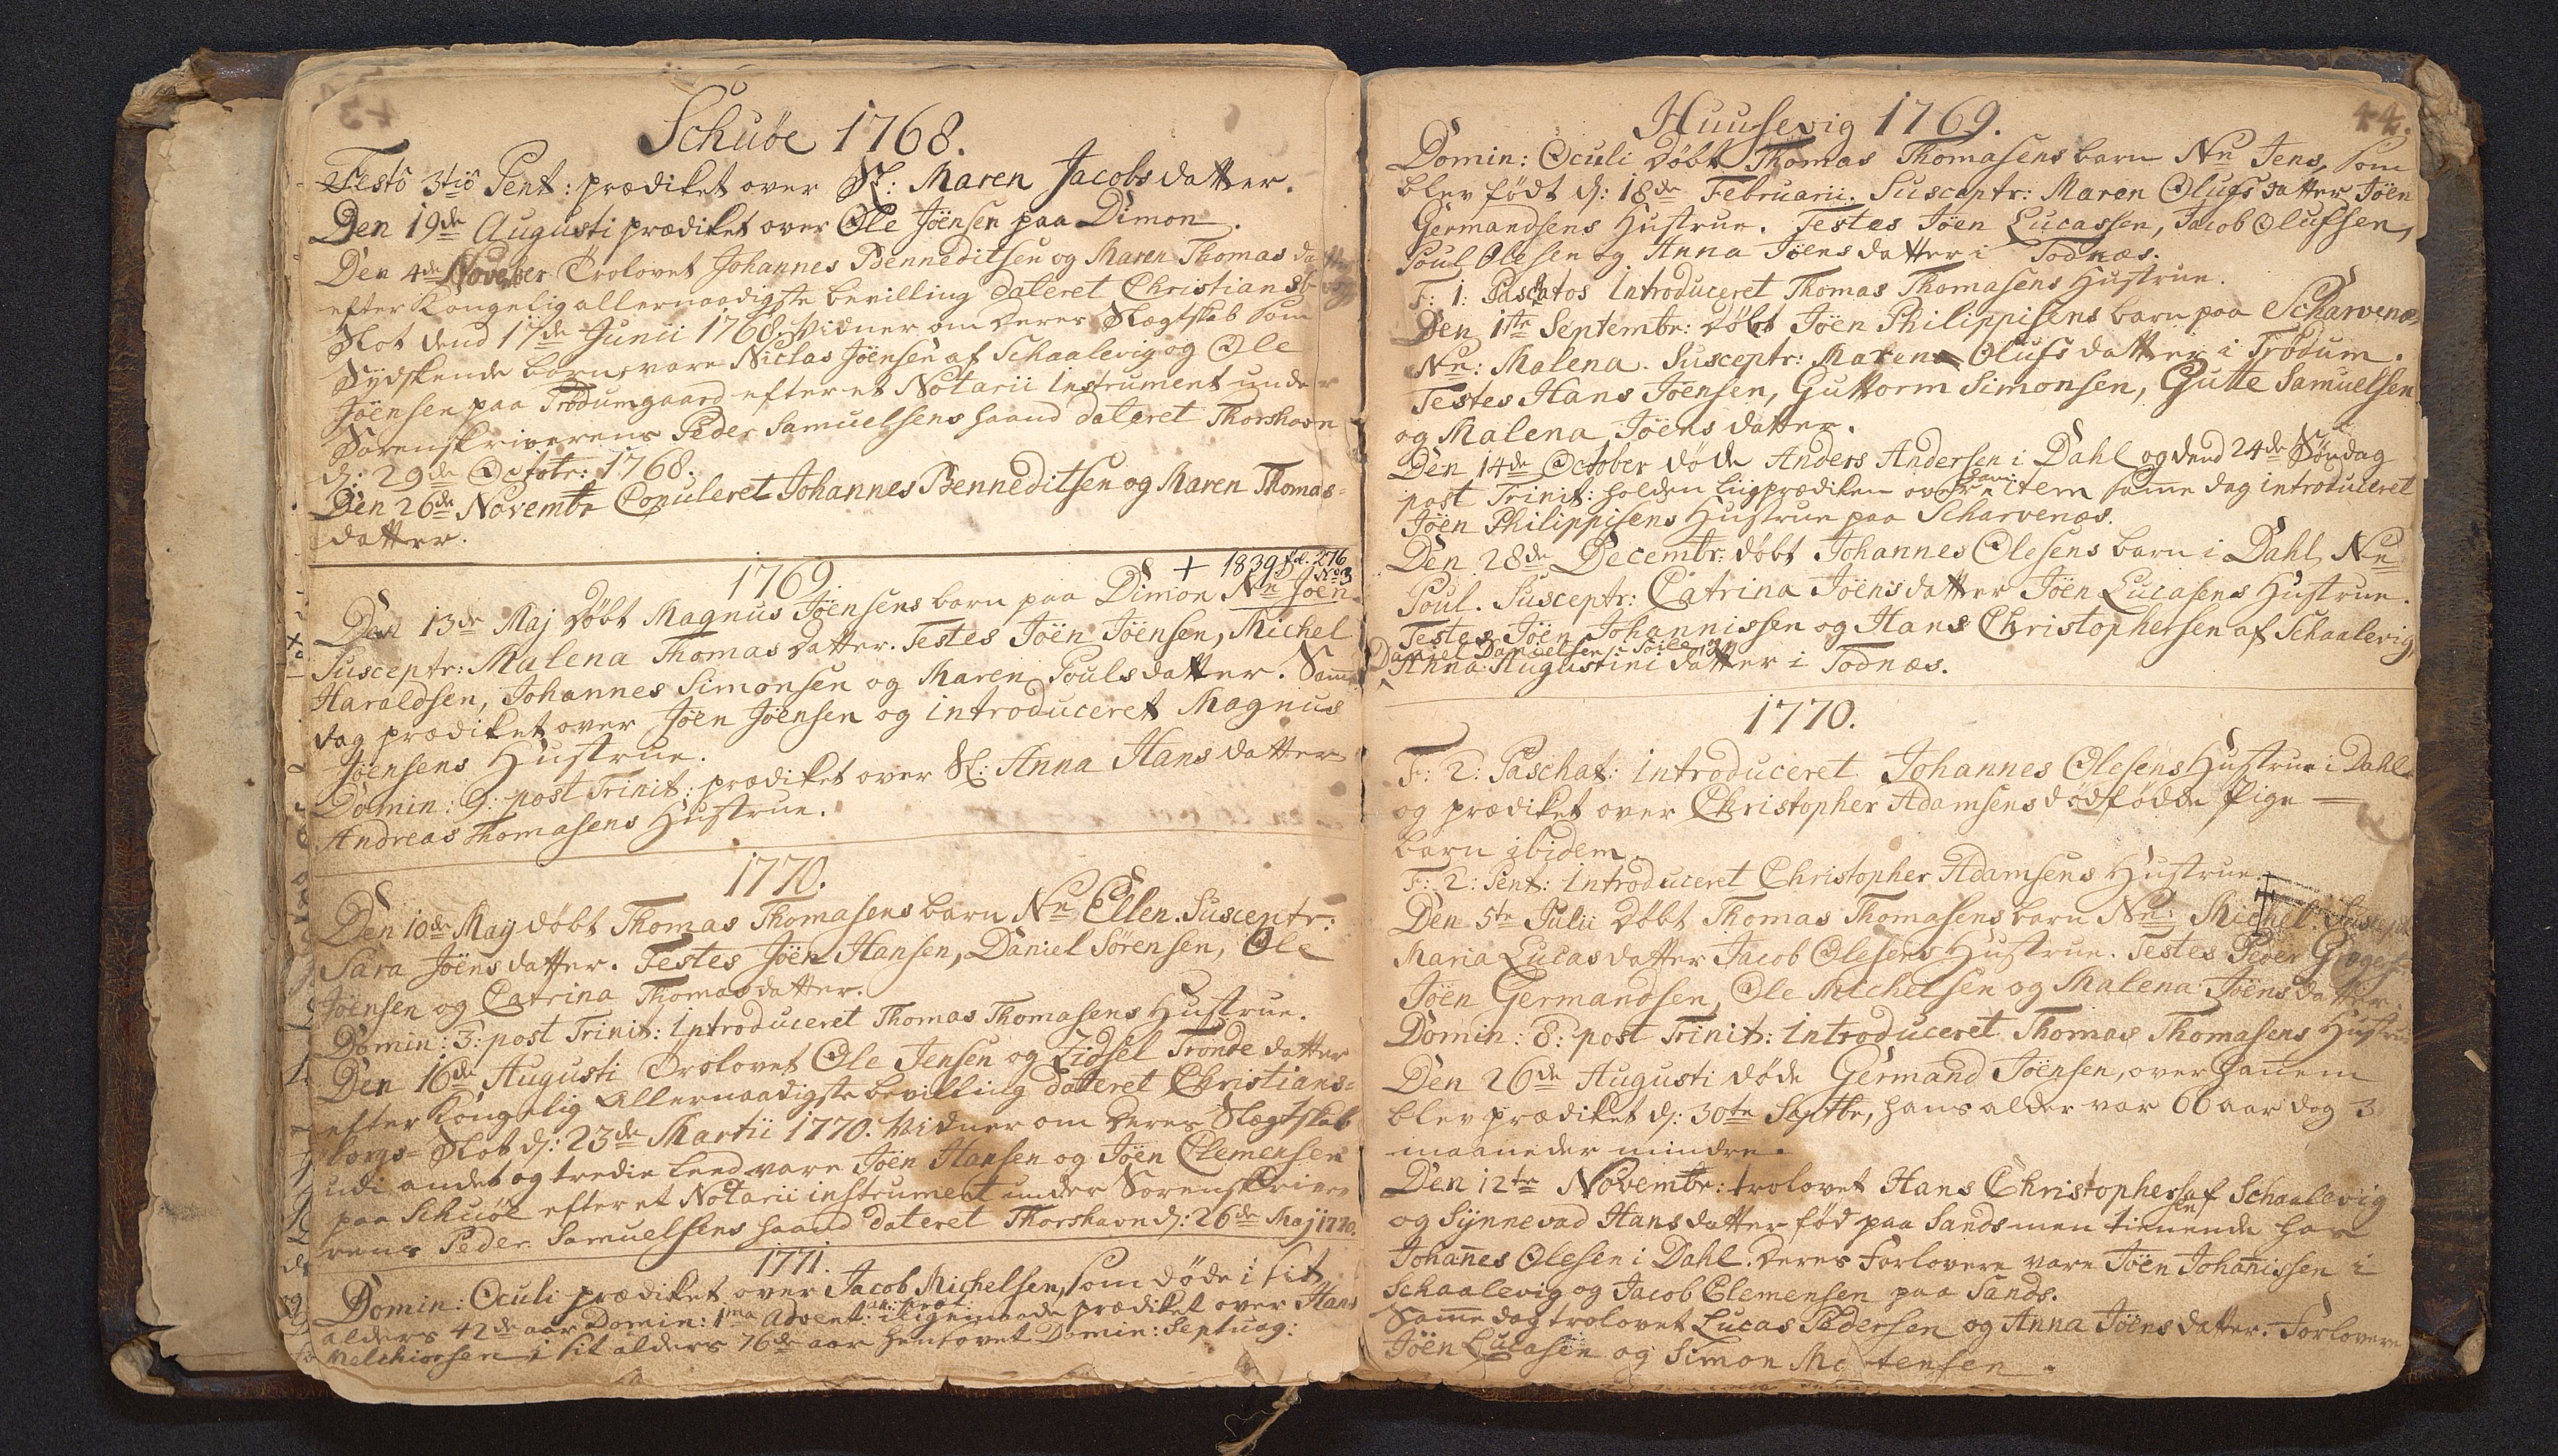 Schuöe 1768.
Festô 3tiô Pent: prædiket over Sl: Maren Jacobsdatter.
Den 19de Augusti prædiket over Ole Jöensen paa Dimon.
Den 4de November Trolovet Johannes Benneditsen og Maren Thomasdatter
efter Kongelig allernaadigste bevilling dateret Christiansborg
Slot dend 17de Junii 1768. Vidner om deres Slægtskab som
Sydskende børn vare Niclas Jöensen af Schaalevig og Ole
Jöensen paa Trödumgaard efter et Notarii Instrument under
Sorenskriverens Peder Samuelsens haand dateret Thorshavn
d: 29de Octobr: 1768.
Den 26de Novembr Copuleret Johannes Benneditsen og Maren Thomas-
datter.
1769.
+ 1839 fol. 276
No 3
Den 13de Maj Døbt Magnus Jöensens barn paa Dimon Nn Jöen
Susceptr: Malena Thomasdatter. Testes Jöen Jöensen, Michel
Haraldsen, Johannes Simonsen og Maren Poulsdatter. Samme
dag prædiket over Jöen Jöensen og introduceret Magnus
Jöensens Hustrue.
Domin: 9: post Trinit: prædiket over Sl: Anna Hansdatter
Andreas Thomasens Hustrue.
1770.
Den 10de Maij døbt Thomas Thomasens barn Nn Ellen. Susceptr:
Sara Jöensdatter. Testes Jöen Hansen, Daniel Sörensen, Ole
Jöensen og Catrina Thomasdatter.
Domin: 3: post Trinit: Introduceret Thomas Thomasens Hustrue.
Den 16de Augusti Trolovet Ole Jensen og Zidsel Trondedatter
efter Kongelig Allernaadigste bevilling dateret Christians-
borgs Slot d: 23de Martii 1770. Vidner om deres Slægtskab
udi andet og tredie Leed vare Jöen Hansen og Jöen Clemensen
paa Schuöe efter et Notarii instrument under Sorenskrive-
rens Peder Samuelsens haand dateret Thorshavn d: 26de Maj 1770.
1771.
Domin: Oculi prædiket over Jacob Michelsen, som døde i sit
alders 42de aar Domin: 1ma Advent: iligemaade prædiket over Hans
Melchiorsen i sit alders 76de aar hensovet Domin: Septuag:
44.
Huusevig 1769.
Domin: Oculi Døbt Thomas Thomasens barn Nn Jens, som
blev født d: 18de Februarii. Susceptr: Maren Olufsdatter Jöen
Germandsens Hustrue. Testes Jöen Lucassen, Jacob Olufsen,
Poul Olesen og Anna Jöensdatter i Todnæs.
F: 1: Paschatos Introduceret Thomas Thomasens Hustrue.
Den 1ste Septembr: Døbt Jöen Philippisens barn paa Scharvenæs
Nn: Malena. Susceptr: Maren Olufsdatter i Trödum.
Testes Hans Jöensen, Guttorm Simonsen, Gutte Samuelsen
og Malena Jöensdatter.
Den 14de October døde Anders Andersen i Dahl og dend 24de Søndag
post Trinit: holden Liigprædiken over ham item samme dag introduceret
Jöen Philippisens Hustrue paa Scharvenæs.
Den 28de Decembr: døbt Johannes Olesens barn i Dahl, Nn
Poul. Susceptr: Catrina Jöensdatter Jöen Lucasens Hustrue.
Testes Jöen Johannissen og Hans Christophersen af Schaalevig,
Daniel Danielsen
Anna Augustini datter i Todnæs.
1770.
F: 2: Paschat: Introduceret Johannes Olesens Hustrue i Dahl
og prædiket over Christopher Adamsens dødfødde Pige
barn ibidem.
F: 2: Pent: Introduceret Christopher Adamsens Hustrue.
Den 5te Julii Døbt Thomas Thomasens barn Nn: Michel. Suscept
Maria Lucasdatter Jacob Olesens Hustrue. Testes Peder
Jöen Germandsen, Ole Michelsen og Malena Jöensdatter.
Domin: 8: post Trinit: Introduceret Thomas Thomasens Hustrue
Den 26de Augusti døde Germand Jöensen, over hannem
blev prædiket d: 30te Septbr, hans alder var 66 aar dog 3
maaneder mindre.
Den 12te Novembr: trolovet Hans Christophersen af Schaalevig
og Sÿnnevad Hansdatter fød paa Sands men tienende hos
Johanes Olesen i Dahl. Deres Forlovere vare Jöen Johanissen i
Schaalevig og Jacob Clemensen paa Sands.
Samme dag trolovet Lucas Pedersen og Anna Jöensdatter. Forlovere
Jöen Lucasen og Simon Mortensen.